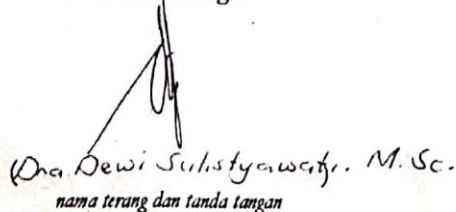 (Dra. Dewi Sulistyawati. M.Sc.
nama terang dan tanda tangan